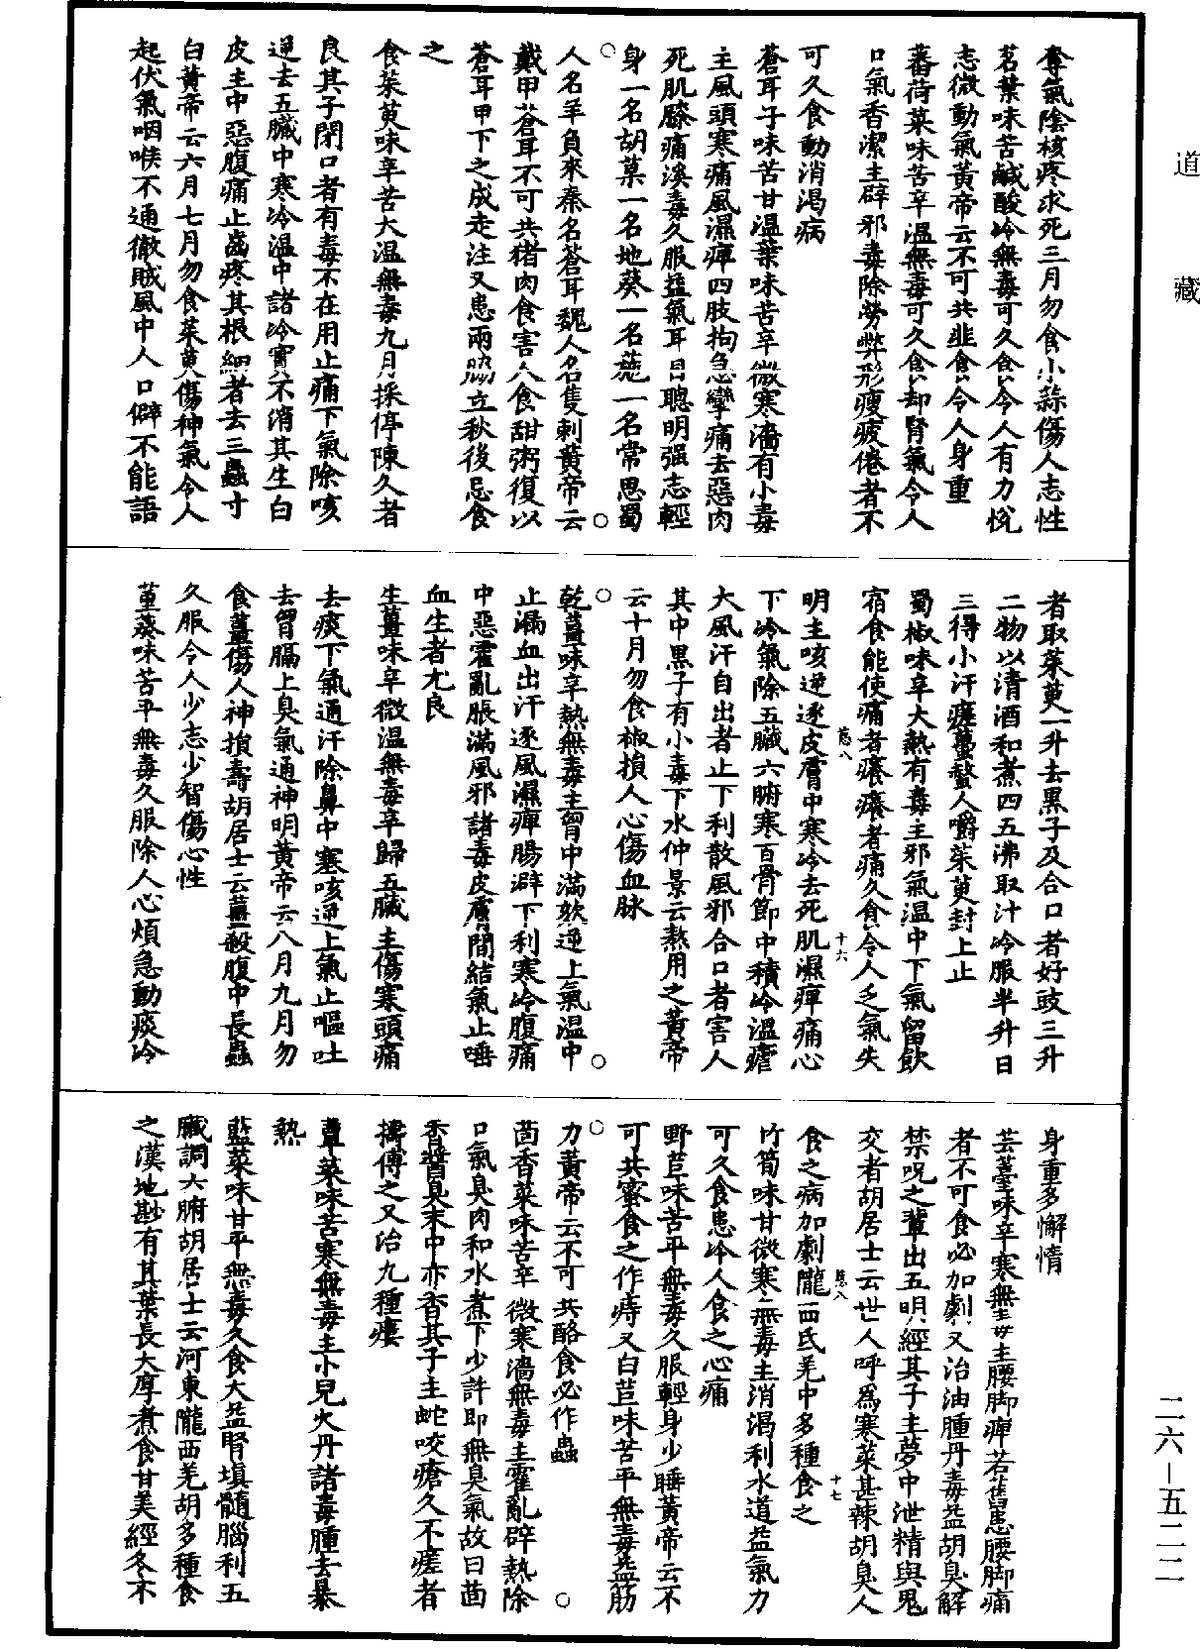 道藏
奪氣陰核疼求死三月勿食小蒜傷人志性
茗葉味苦鹹酸冷無毒可久食令人有力悅
志微動氣黃帝云不可共韭食令人身重
蕃荷菜味苦辛溫無毒可久食却腎氣令人
口氣香潔主辟邪毒除勞弊形瘦疲倦者不
可久食動消渴病
蒼耳子味苦甘溫葉味苦辛微寒濇有小毒
主風頭寒痛風濕痺四肢拘急攣痛去惡肉
死肌膝痛溪毒久服益氣耳目聰明强志輕
身一名胡菜一名地葵一名葹一名常思蜀
人名羊負來秦名蒼耳魏人名隻刺黃帝云
戴甲蒼耳不可共猪肉食害人食甜粥復以
蒼耳甲下之成走注又患兩脇立秋後忌食
之
食茱萸味辛苦大溫無毒九月採停陳久者
良其子閉口者有毒不在用止痛下氣除咳
逆去五臟中寒冷溫中諸冷實不消其生白
皮主中惡腹痛止齒疼其根細者去三蟲寸
白黃帝云六月七月勿食茱萸傷神氣令人
起伏氣咽喉不通徹賊風中人口僻不能語
者取茱萸一升去黑子及合口者好豉三升
二物以清酒和煮四五沸取汁冷服半升日
三得小汗瘥蠆螫人嚼茱萸封上止
蜀椒味辛大熱有毒主邪氣溫中下氣留飲
宿食能使痛者癢癢者痛久食令人乏氣失
明主咳逆逐皮膚中寒冷去死肌濕痺痛心
慈八
十六
下冷氣除五臟六腑寒百骨節中積冷溫瘧
大風汗自出者止下利散風邪合口者害人
其中黑子有小毒下水仲景云熬用之黃帝
云十月勿食椒損人心傷血脉
乾薑味辛熱無毒主胷中滿欬逆上氣溫中
止漏血出汗逐風濕痺腸澼下利寒冷腹痛
中惡霍亂脹滿風邪諸毒皮膚間結氣止唾
血生者尤良
生薑味辛微溫無毒辛歸五臟主傷寒頭痛
去痰下氣通汗除鼻中塞咳逆上氣止嘔吐
去胷膈上臭氣通神明黃帝云八月九月勿
食薑傷人神損壽胡居士云薑殺腹中長蟲
久服令人少志少智傷心性
菫葵味苦平無毒久服除人心煩急動痰冷
身重多懈惰
芸薹味辛寒無毒主腰脚痺若舊患腰脚痛
者不可食必加劇又治油腫丹毒益胡臭解
禁呪之輩出五明經其子主夢中泄精與鬼
交者胡居士云世人呼爲寒菜甚辣胡臭人
食之病加劇隴西氐羌中多種食之
慈八
十七
竹筍味甘微寒無毒主消渴利水道益氣力
可久食患冷人食之心痛
野苣味苦平無毒久服輕身少睡黃帝云不
可共蜜食之作痔又白苣味苦平無毒益筋
力黃帝云不可共酪食必作蟲
茴香菜味苦辛微寒濇無毒主霍亂辟熱除
口氣臭肉和水煮下少許即無臭氣故曰茴
香醬臭末中亦香其子主蛇咬瘡久不瘥者
擣傅之又治九種瘻
蕈菜味苦寒無毒主小兒火丹諸毒腫去暴
熱
藍菜味甘平無毒久食大益腎填髓腦利五
臟調六腑胡居士云河東隴西羌胡多種食
之漢地尠有其葉長大厚煮食甘美經冬不
二六—五二二